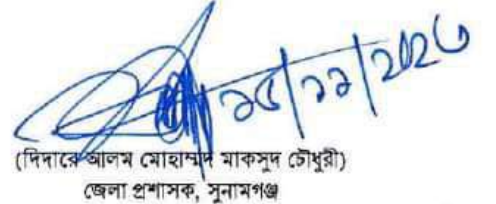 ১৫/১১/২০২৩
(দিদারে আলম মোহাম্মদ মাকসুদ চৌধুরী)
জেলা প্রশাসক, সুনামগঞ্জ